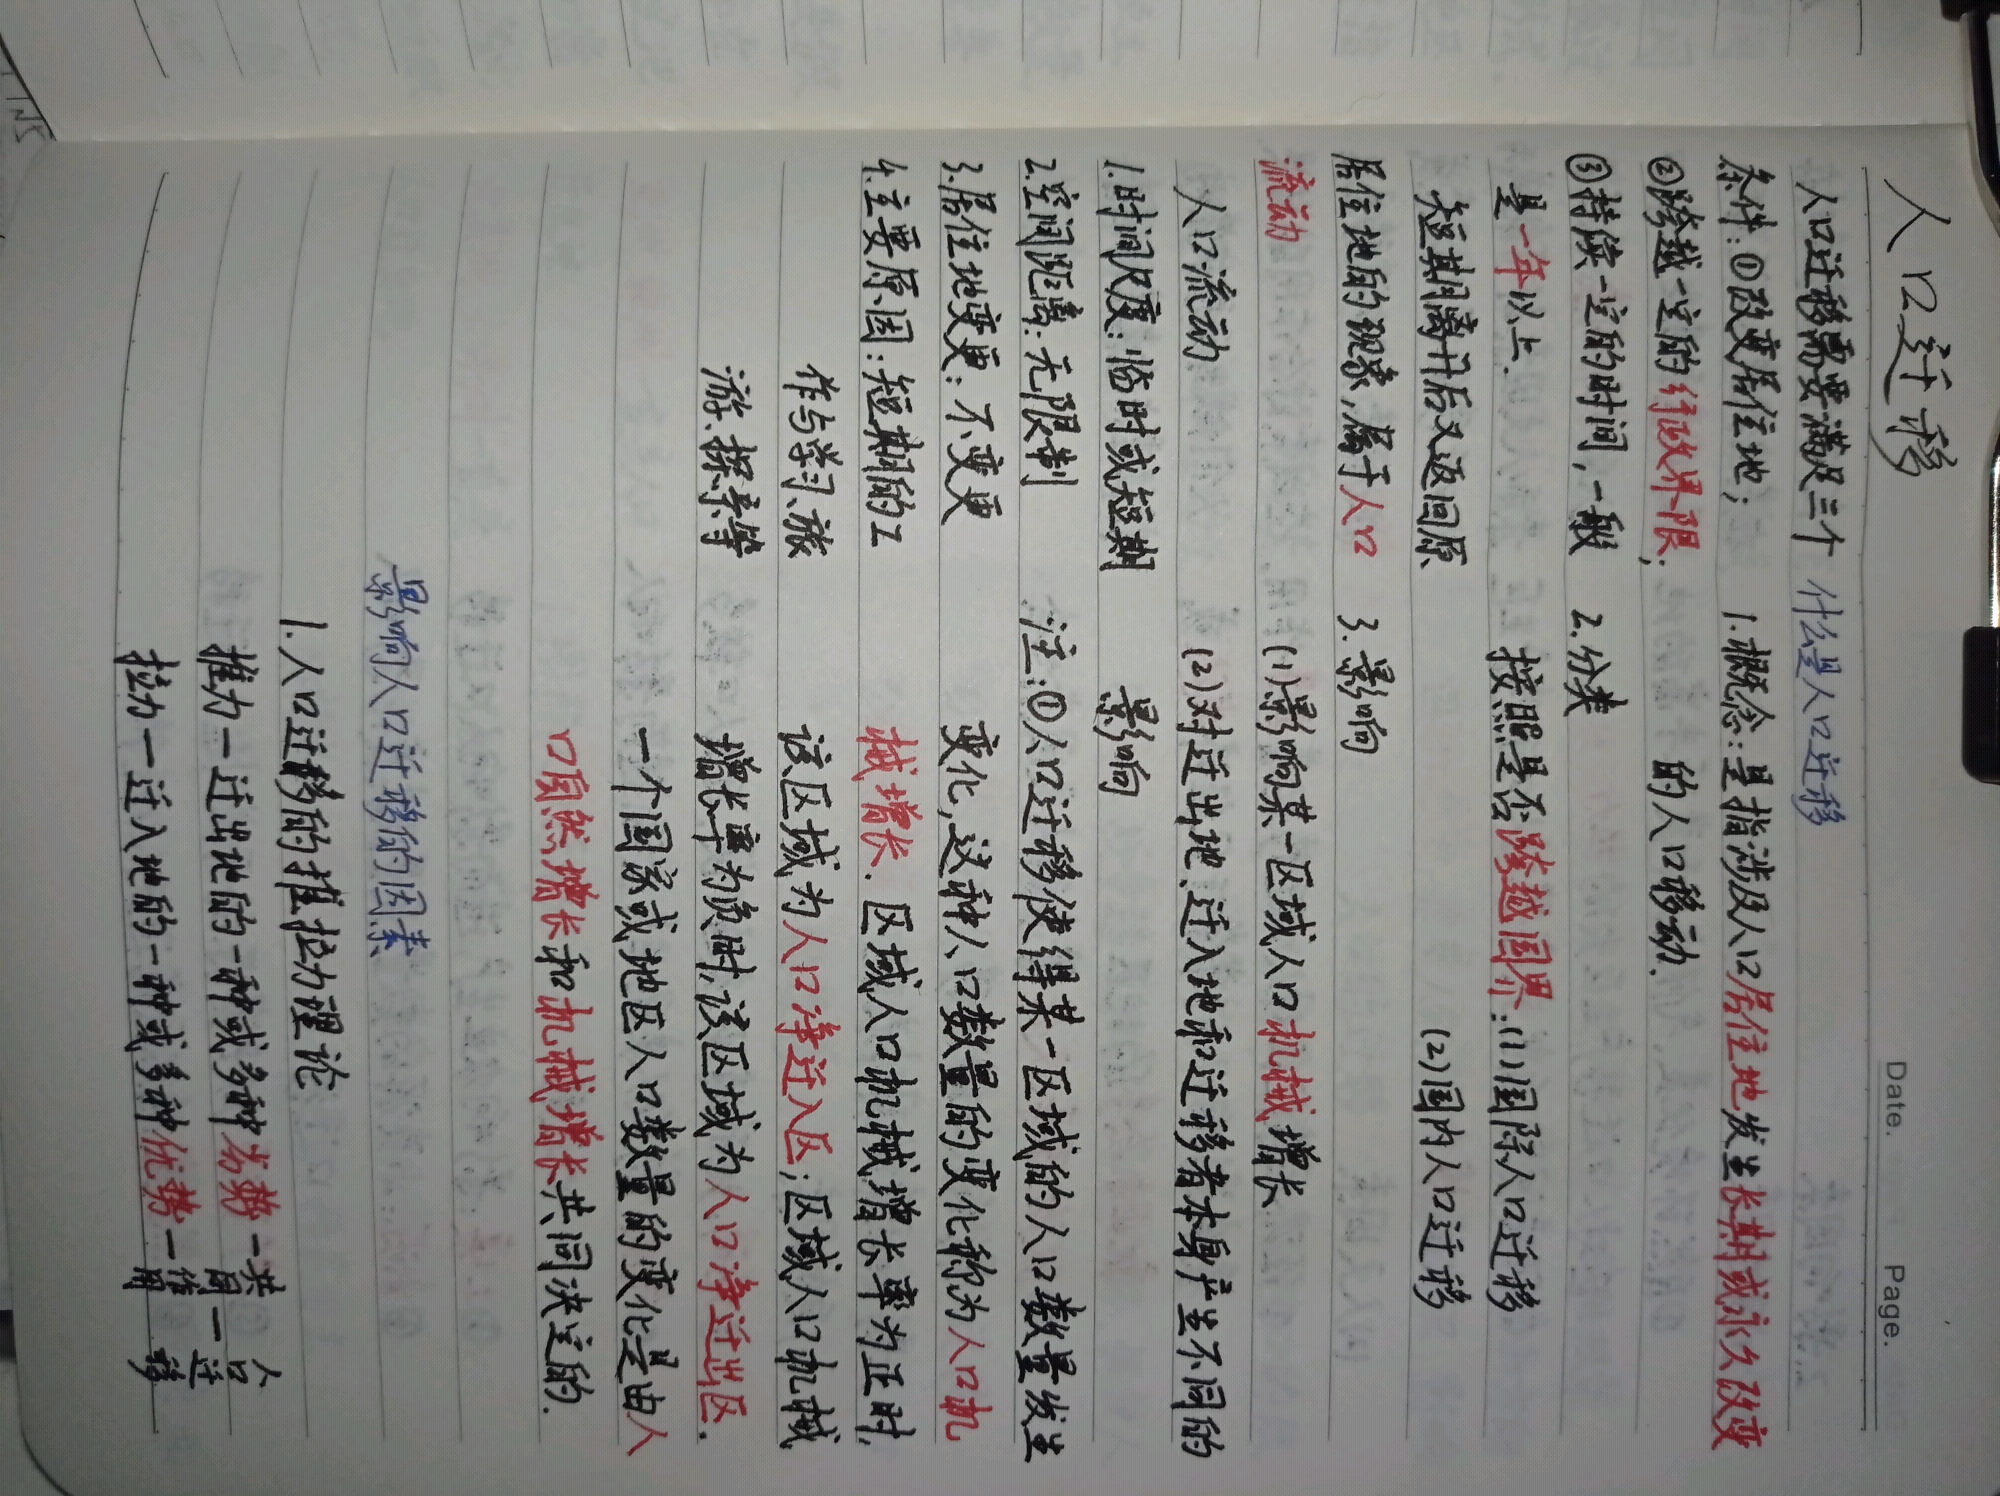 人口迁移
Date.
Page.
人口迁移需要满足三个
条件:①改变居住地;
②跨越一定的行政界限;
③持续一定的时间,一般
是一年以上.
短期离开后又返回原
居住地的现象,属于人口
流动
人口流动
1.时间尺度:临时或短期
2.空间距离:无限制
3.居住地变更:不变更
4.主要原因:短期的工
作与学习、旅
游、探亲等
什么是人口迁移
1.概念:是指涉及人口居住地发生长期或永久改变
的人口移动.
2.分类
按照是否跨越国界:(1)国际人口迁移
(2)国内人口迁移
3.影响
(1)影响某一区域人口机械增长
(2)对迁出地、迁入地和迁移者本身产生不同的
影响
注:①人口迁移使得某一区域的人口数量发生
变化,这种人口数量的变化称为人口机
械增长.区域人口机械增长率为正时,
该区域为人口净迁入区;区域人口机械
增长率为负时,该区域为人口净迁出区.
一个国家或地区人口数量的变化是由人
口自然增长和机械增长共同决定的.
影响人口迁移的因素
1.人口迁移的推拉力理论
推力一迁出地的一种或多种劣势一共同一人口
拉力一迁入地的一种或多种优势一作用 迁移